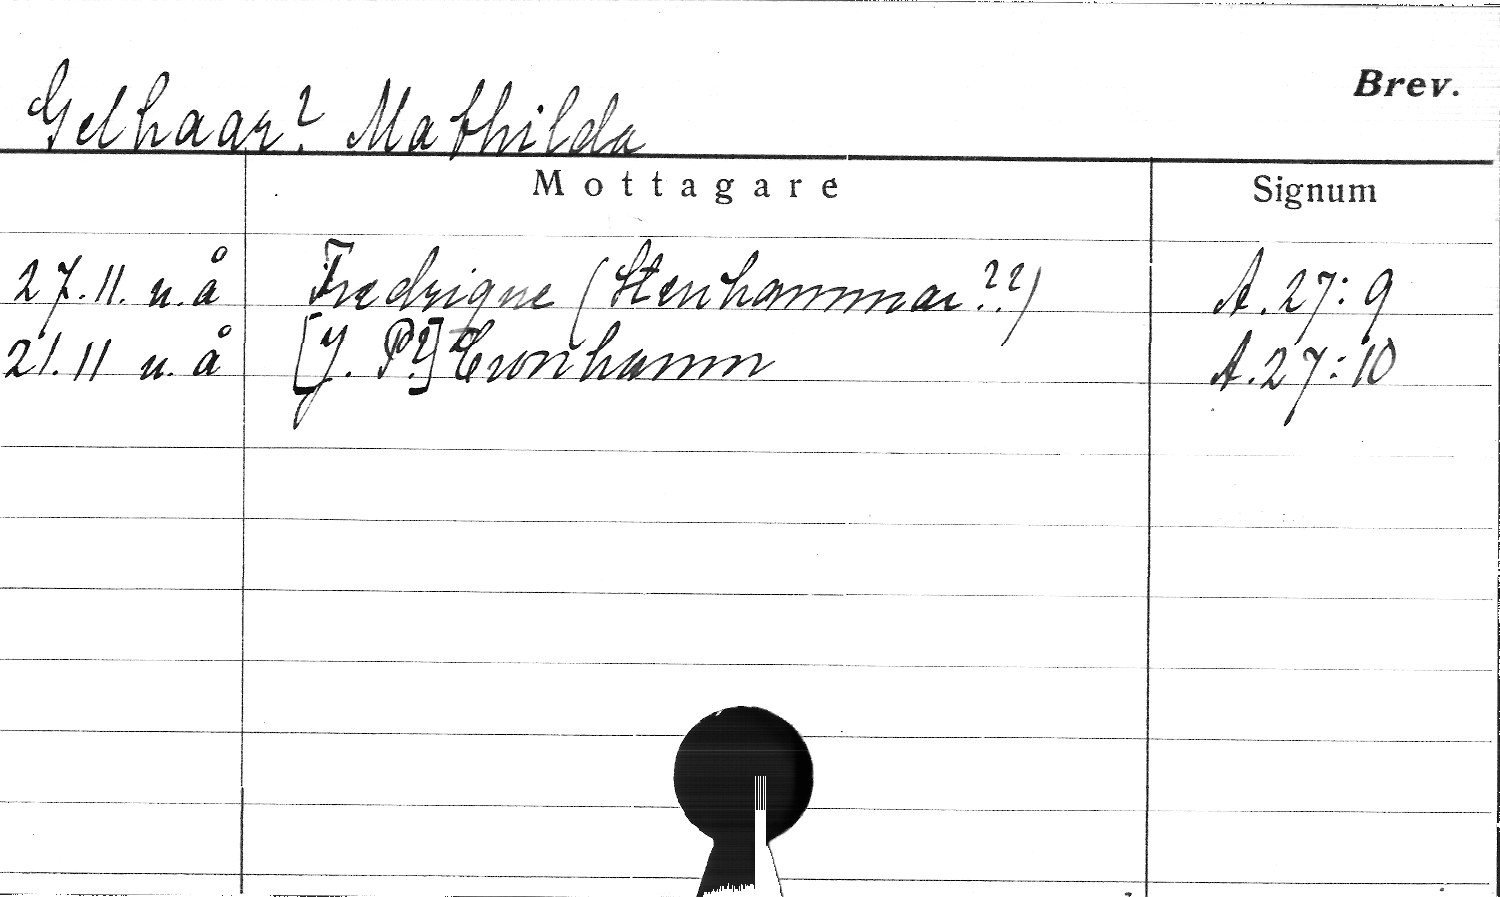 Brev.
Gelhaar? Mathilda
Mottagare Signum
27.11. u.å Fredrique (Stenhammar??) A.27:9
21.11 u.å [J. P?] Cronhamn A.27:10